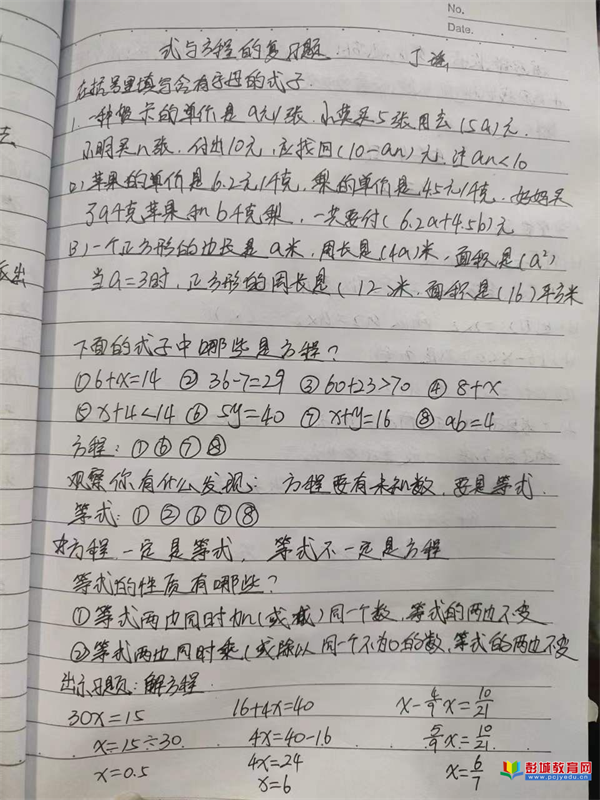 No.
Date.
式与方程的复习题
丁瑶
在括号里填写含有字母的式子.
1. 一种贺卡的单价是a元/张. 小英买5张用去(5a)元.
小明买n张. 付出10元, 应找回(10-an)元. 注an<10
(2)苹果的单价是6.2元/千克, 梨的单价是4.5元/千克. 妈妈买
了a千克苹果和b千克梨, 一共要付(6.2a+4.5b)元
(3)一个正方形的边长是a米, 周长是(4a)米, 面积是(a²)
当a=3时, 正方形的周长是(12)米, 面积是(16)平方米
下面的式子中哪些是方程?
①6+x=14 ②36-7=29 ③60+23>70 ④8+x
⑤x+4<14 ⑥5y=40 ⑦x+y=16 ⑧ab=4
方程: ①⑥⑦⑧
观察你有什么发现: 方程要有未知数, 要是等式.
等式: ①②⑥⑦⑧
☆方程一定是等式, 等式不一定是方程
等式的性质有哪些?
①等式两边同时加(或减)同一个数, 等式的两边不变
②等式两边同时乘(或除以同一个不为0的数, 等式的两边不变
出示习题: 解方程.
30x=15 16+4x=40 x-4/9x=10/21
x=15÷30 4x=40-16 5/9x=10/21
x=0.5 4x=24 x=6/7
x=6
彭城教育网
www.pcjyedu.cn